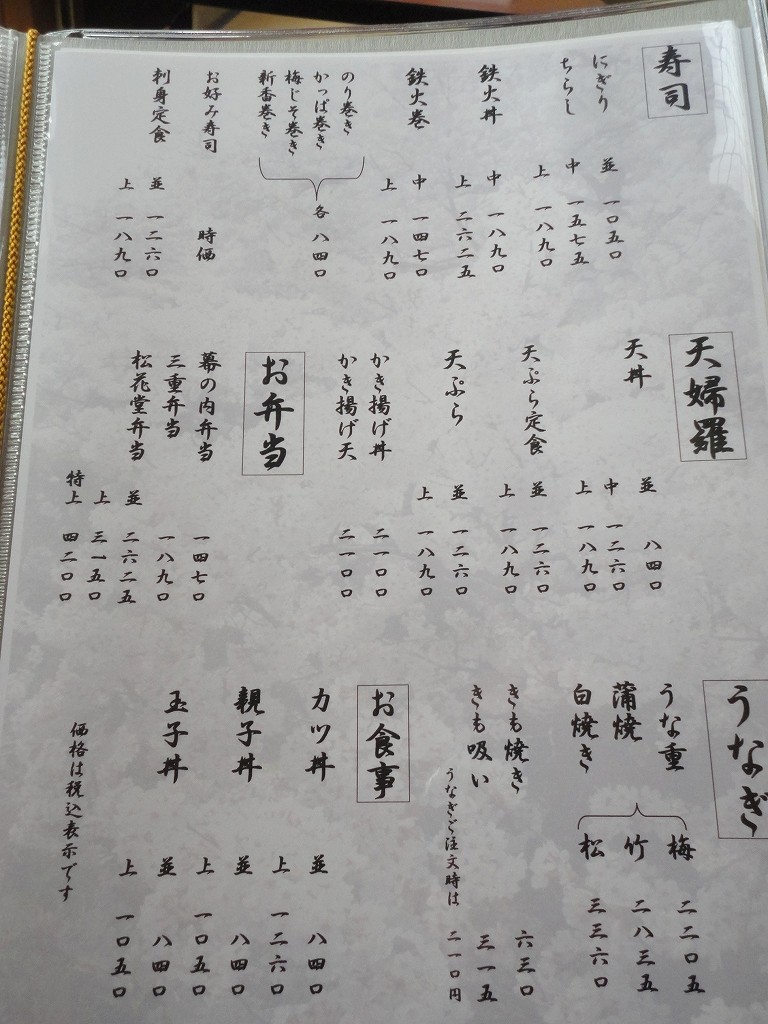 寿司
にぎり
ちらし
並 一〇五〇
中 一五七五
上 一八九〇
鉄火丼
中 一八九〇
上 二六二五
鉄火巻
中 一四七〇
上 一八九〇
のり巻き
かっぱ巻き
梅じそ巻き
新香巻き
各 八四〇
お好み寿司 時価
刺身定食
並 一二六〇
上 一八九〇
天婦羅
天丼
並 八四〇
中 一二六〇
上 一八九〇
天ぷら定食
並 一二六〇
上 一八九〇
天ぷら
並 一二六〇
上 一八九〇
かき揚げ丼 二一〇〇
かき揚げ天 二一〇〇
お弁当
幕の内弁当 一四七〇
三重弁当 一八九〇
松花堂弁当
並 二六二五
上 三一五〇
特上 四二〇〇
うなぎ
うな重
蒲焼
白焼き
梅 二二〇五
竹 二八三五
松 三三六〇
きも焼き 六三〇
きも吸い 三一五
うなぎご注文時は 二一〇円
お食事
カツ丼
並 八四〇
上 一二六〇
親子丼
並 八四〇
上 一〇五〇
玉子丼
並 八四〇
上 一〇五〇
価格は税込表示です